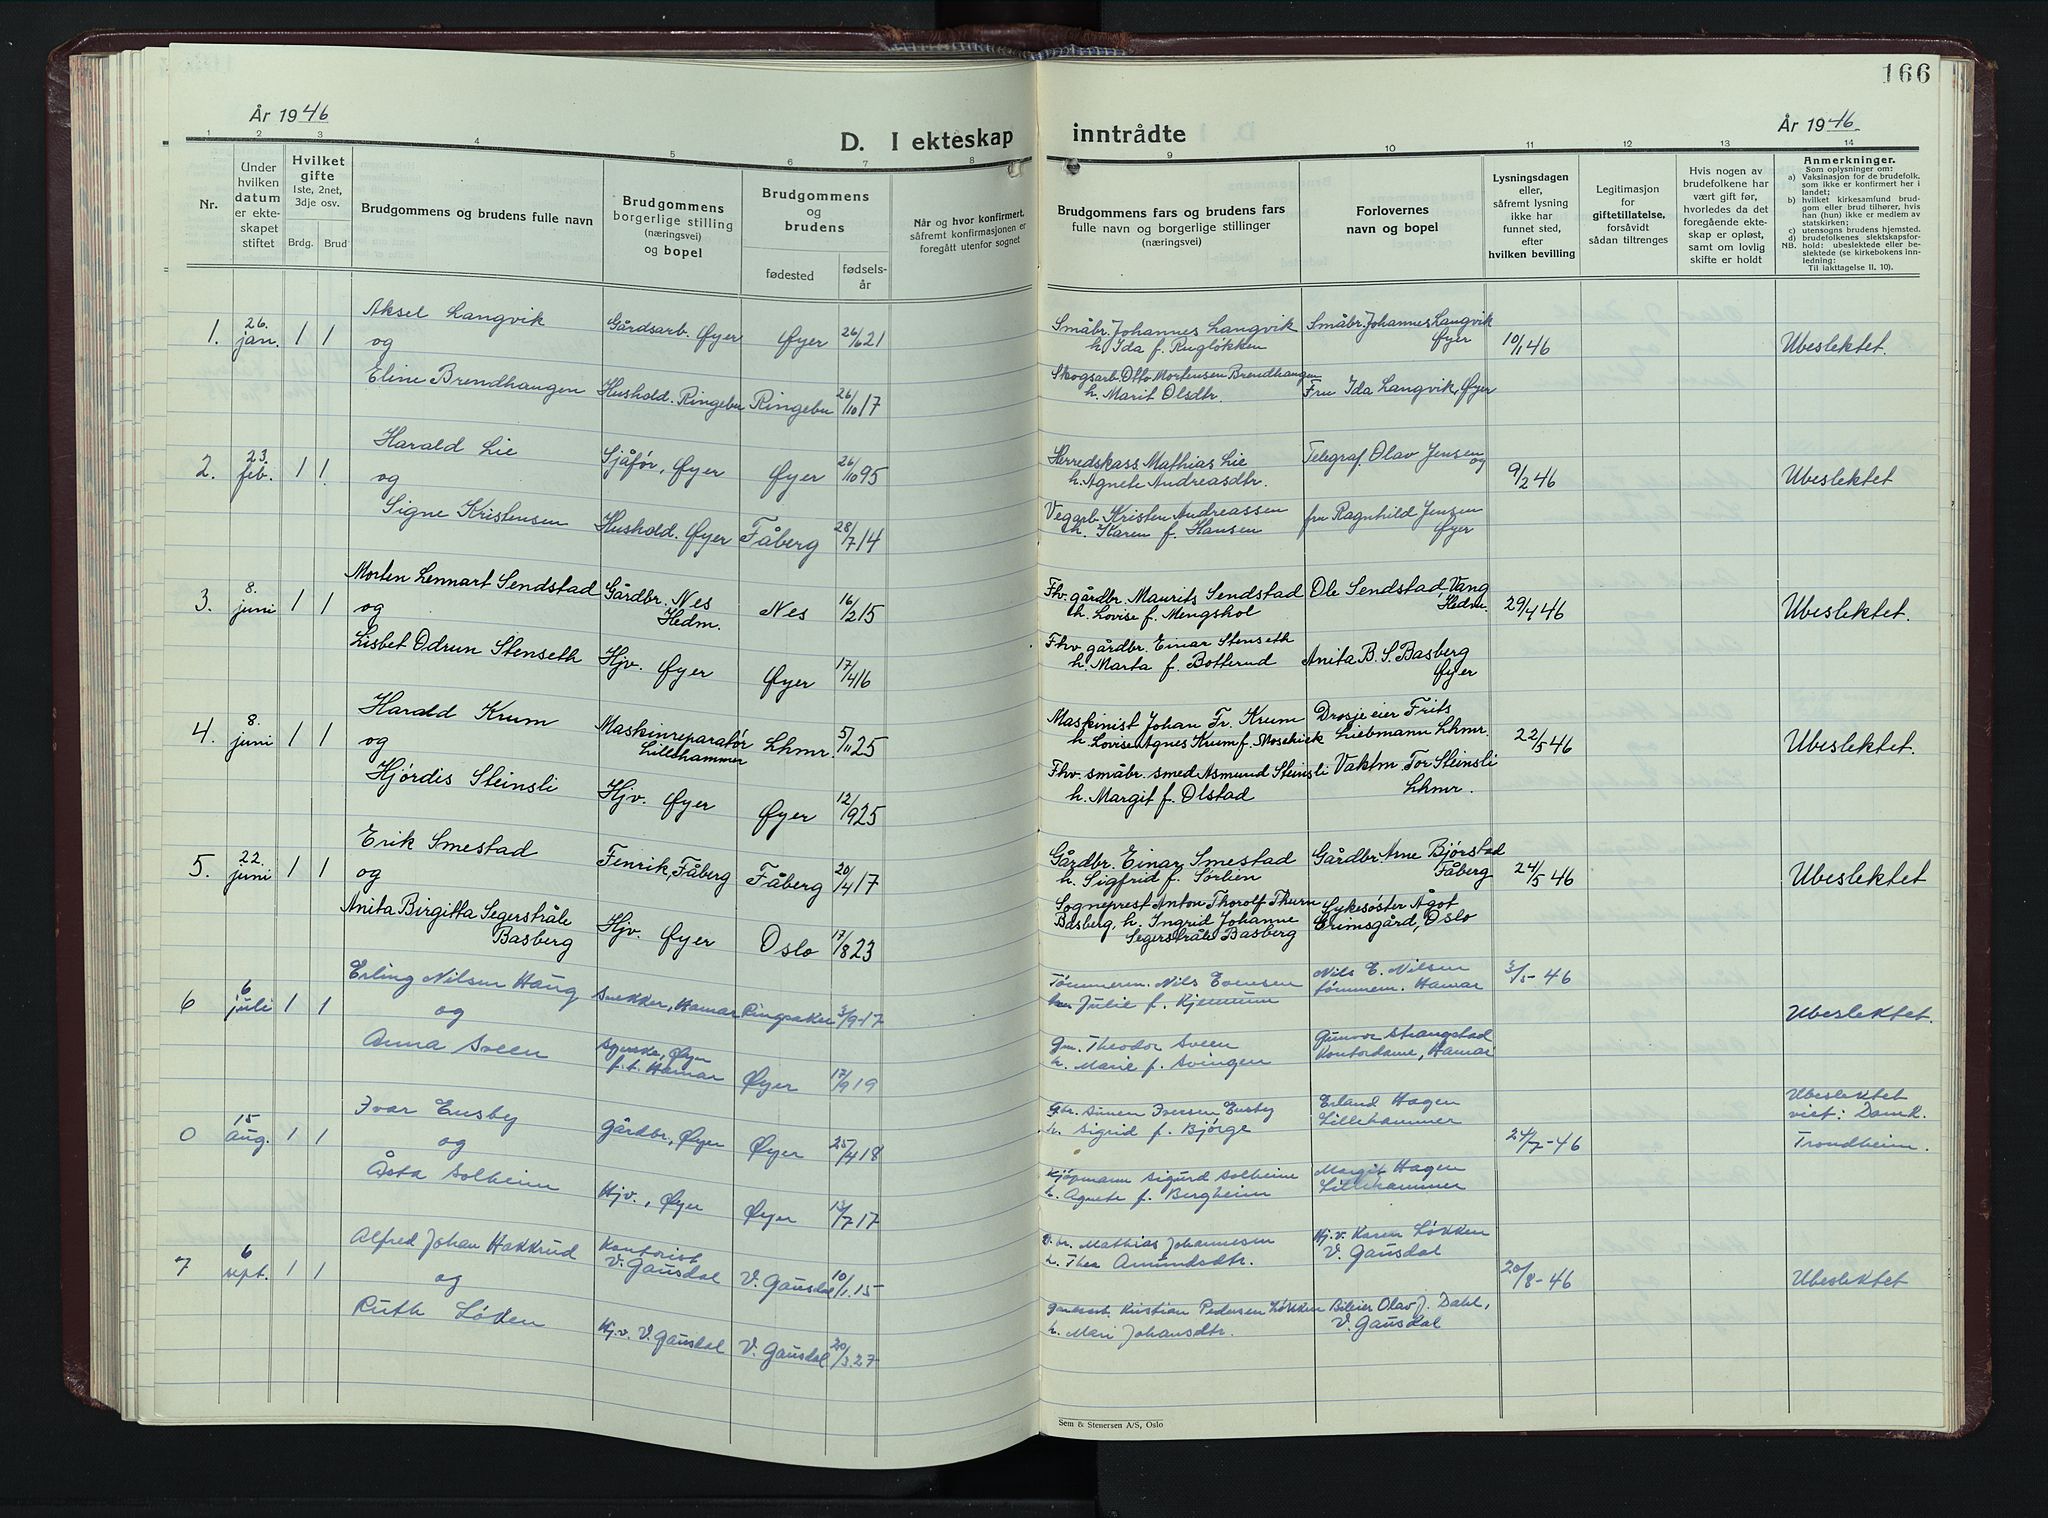 166
År 1946
År 1946
D. I ekteskap inntrådte
1 2 3 4 5 6 7 8 9 10 11 12 13 14
Nr.
Under
hvilken
datum
er ekte-
skapet
stiftet
Hvilket
gifte
1ste, 2net,
3dje osv.
Brdg. Brud
Brudgommens og brudens fulle navn
Brudgommens
borgerlige stilling
(næringsvei)
og bopel
Brudgommens
og
brudens
fødested
fødsels-
år
Når og hvor konfirmert,
såfremt konfirmasjonen er
foregått utenfor sognet
Brudgommens fars og brudens fars
fulle navn og borgerlige stillinger
(næringsvei)
Forlovernes
navn og bopel
Lysningsdagen
eller,
såfremt lysning
ikke har
funnet sted,
efter
hvilken bevilling
Legitimasjon
for
giftetillatelse,
forsåvidt
sådan tiltrenges
Hvis nogen av
brudefolkene har
vært gift før,
hvorledes da det
foregående ekte-
skap er opløst,
samt om lovlig
skifte er holdt
Anmerkninger.
Som oplysninger om:
a) Vaksinasjon for de brudefolk,
som ikke er konfirmert her i
landet;
b) hvilket kirkesamfund brud-
gom eller brud tilhører, hvis
han (hun) ikke er medlem av
statskirken;
c) utensogns brudens hjemsted.
d) brudefolkenes slektskapsfor-
NB. hold: ubeslektede eller be-
slektede (se kirkebokens inn-
ledning:
Til iakttagelse II. 10).
1. 26. jan. 1 1 Aksel Langvik Gårdsarb. Øyer Øyer 26/6 21 Småbr. Johannes Langvik Småbr. Johannes Langvik
og h. Ida f. Rugløkken Øyer 10/1 46 Ubeslektet.
Eline Brendhaugen Hushold. Ringebu Ringebu 26/10 17 Skogsarb. Otto Mortensen Brendhaugen Fru Ida Langvik, Øyer
h. Marit Olsdtr.
2. 23. feb. 1 1. Harald Lie Sjåfør, Øyer Øyer 26/10 95 Herredskass. Mathias Lie Telegraf. Olav Jensen
og h. Agnete Andreasdtr. og 9/2 46 Ubeslektet
Signe Kristensen Hushold. Øyer Fåberg 28/7 14 Vegarb. Kristen Andreassen fru Ragnhild Jensen
h. Karen f. Hansen Øyer
3. 8. juni 1 1 Morten Lennart Sendstad Gårdbr. Nes Nes 16/2 15 Fhv. gårdbr. Maurits Sendstad Ole Sendstad, Vang
og Hedm. h. Lovise f. Mengshol Hedm. 29/4 46 Ubeslektet.
Lisbet Odrun Stenseth Hjv. Øyer Øyer 17/4 16 Fhv. gårdbr. Einar Stenseth Anita B. S. Basberg
h. Marta f. Botterud Øyer
4. 8. juni 1 1 Harald Krum Maskinreparatør Lhmr. 5/11 25 Maskinist Johan Fr. Krum Drosjeeier Frits
og Lillehammer h. Lovise Agnes Krum f. Mosekiek Liebmann Lhmr. 22/5 46 Ubeslektet.
Hjørdis Steinsli Hjv. Øyer Øyer 12/9 25 Fhv. småbr. smed Asmund Steinsli Vaktm. Tor Steinsli
h. Margit f. Olstad Lhmr.
5. 22. juni 1 1 Erik Smestad Fenrik, Fåberg Fåberg 20/4 17 Gårdbr. Einar Smestad Gårdbr. Arne Bjørstad
og h. Sigfrid f. Sørlien Fåberg 24/5 46 Ubeslektet
Anita Birgitta Segerstråle Hjv. Øyer Oslo 17/8 23 Sogneprest Anton Thorolf Thurn Sykesøster Ågot
Basberg Basberg, h. Ingrid Johanne Grimsgård, Oslo
Segerstråle Basberg
6 6 juli 1 1 Erling Nilsen Haug Snekker, Hamar Ringsaker 3/9-17 Tømmerm. Nils Evensen Nils E. Nilsen 3/5-46
og h. Julie f. Kjemum tømmerm. Hamar Ubeslektet.
Anna Sveen Syerske, Øyer Øyer 17/9 19 Gm. Theodor Sveen Gunvor Strangstad
f. t. Hamar h. Marie f. Svingen Kontordame, Hamar
0 15 aug. 1 1 Ivar Ensby Gårdbr., Øyer Øyer 25/4 18 Gbr. Simen Iversen Ensby Erland Hagen Ubeslektet
og h. Sigrid f. Bjørge Lillehammer 24/7-46 viet: Domk.
Åsta Solheim Hjv., Øyer Øyer 13/7 17 Kjøpmann Sigurd Solheim Margit Hagen Trondheim.
h. Agnete f. Bergheim Lillehammer
7 6 sept. 1 1 Alfred Johan Hakkrud Kontorist V. Gausdal 10/1.15 Mathias Johannesen Hj.v. Karen Løkken
og V. Gausdal h. Thea Amundsdtr. V. Gausdal 20/8-46 Ubeslektet
Ruth Løken Hj.v. V. Gausdal V. Gausdal 20/3.27 Kristian Pedersen Løkken Bileier Olav J. Dahl,
h. Mari Johansdtr. V. Gausdal
Sem & Stenersen A/S, Oslo